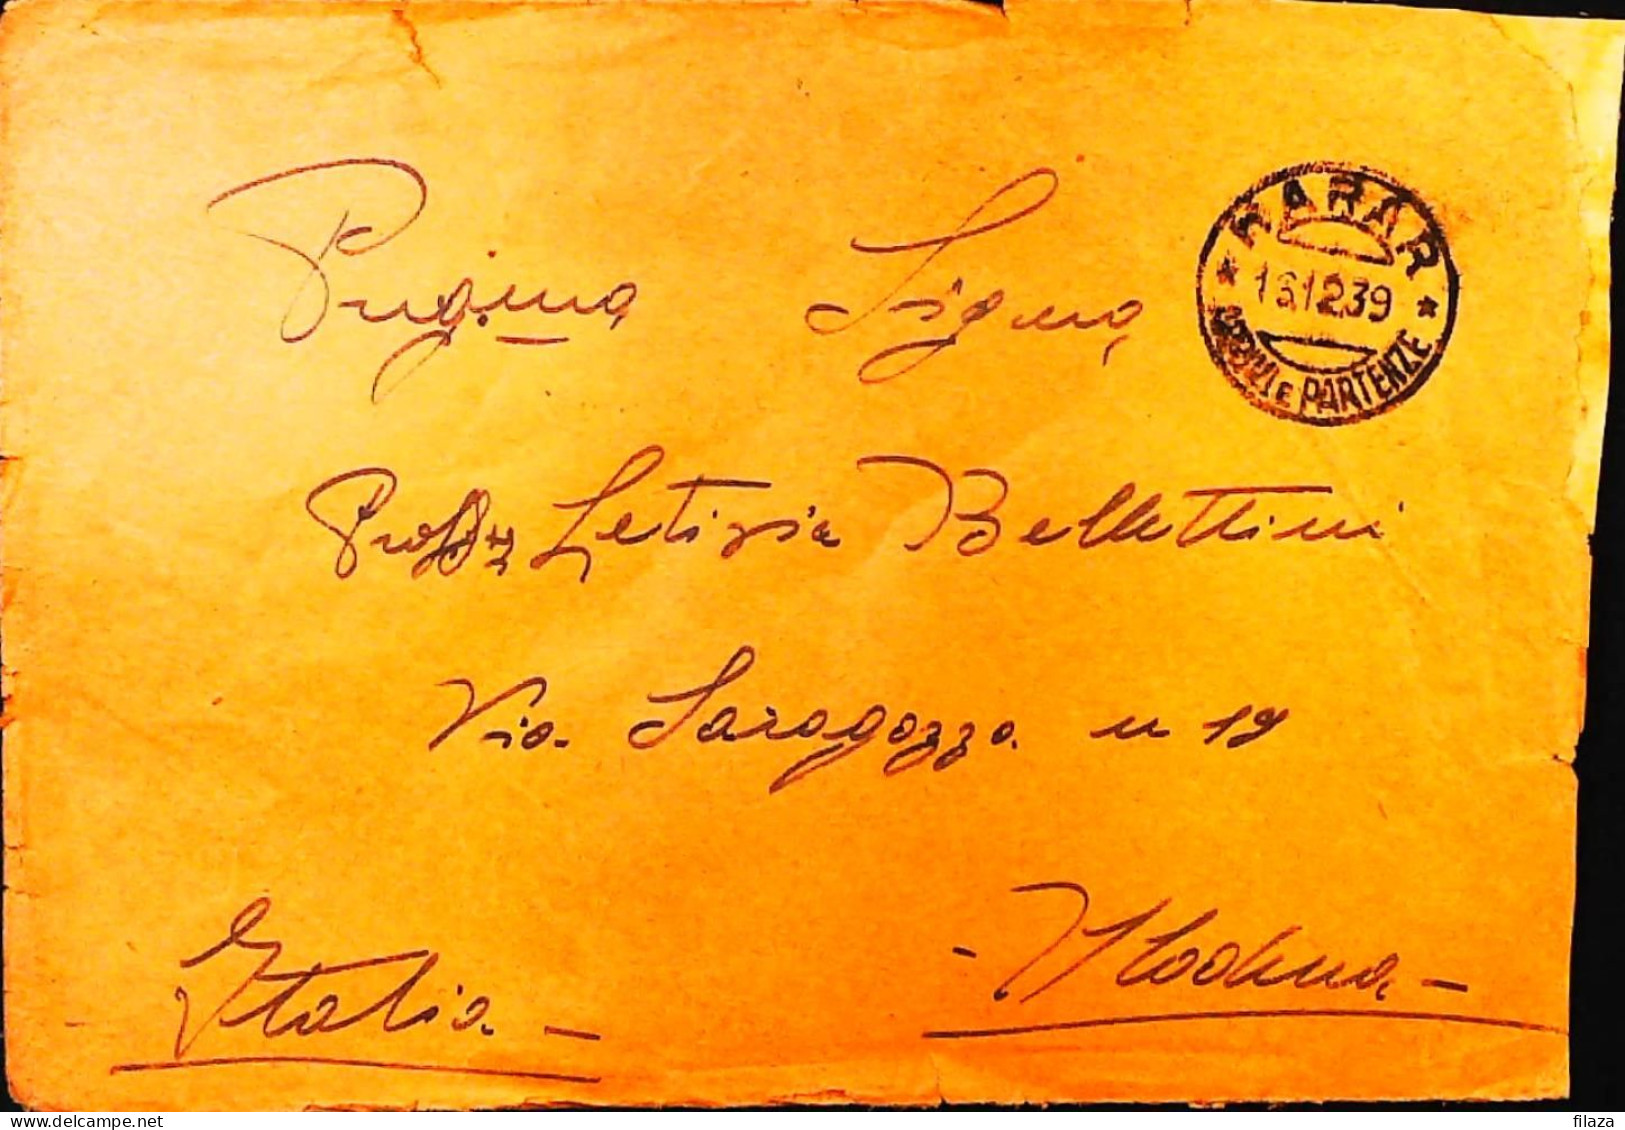 HARAR
16.12.39
ARRIVI E PARTENZE
Pregma Sigma
Profssa Letizia Bellettini
Via Saragozza n 19
Italia -
- Modena -
filaza